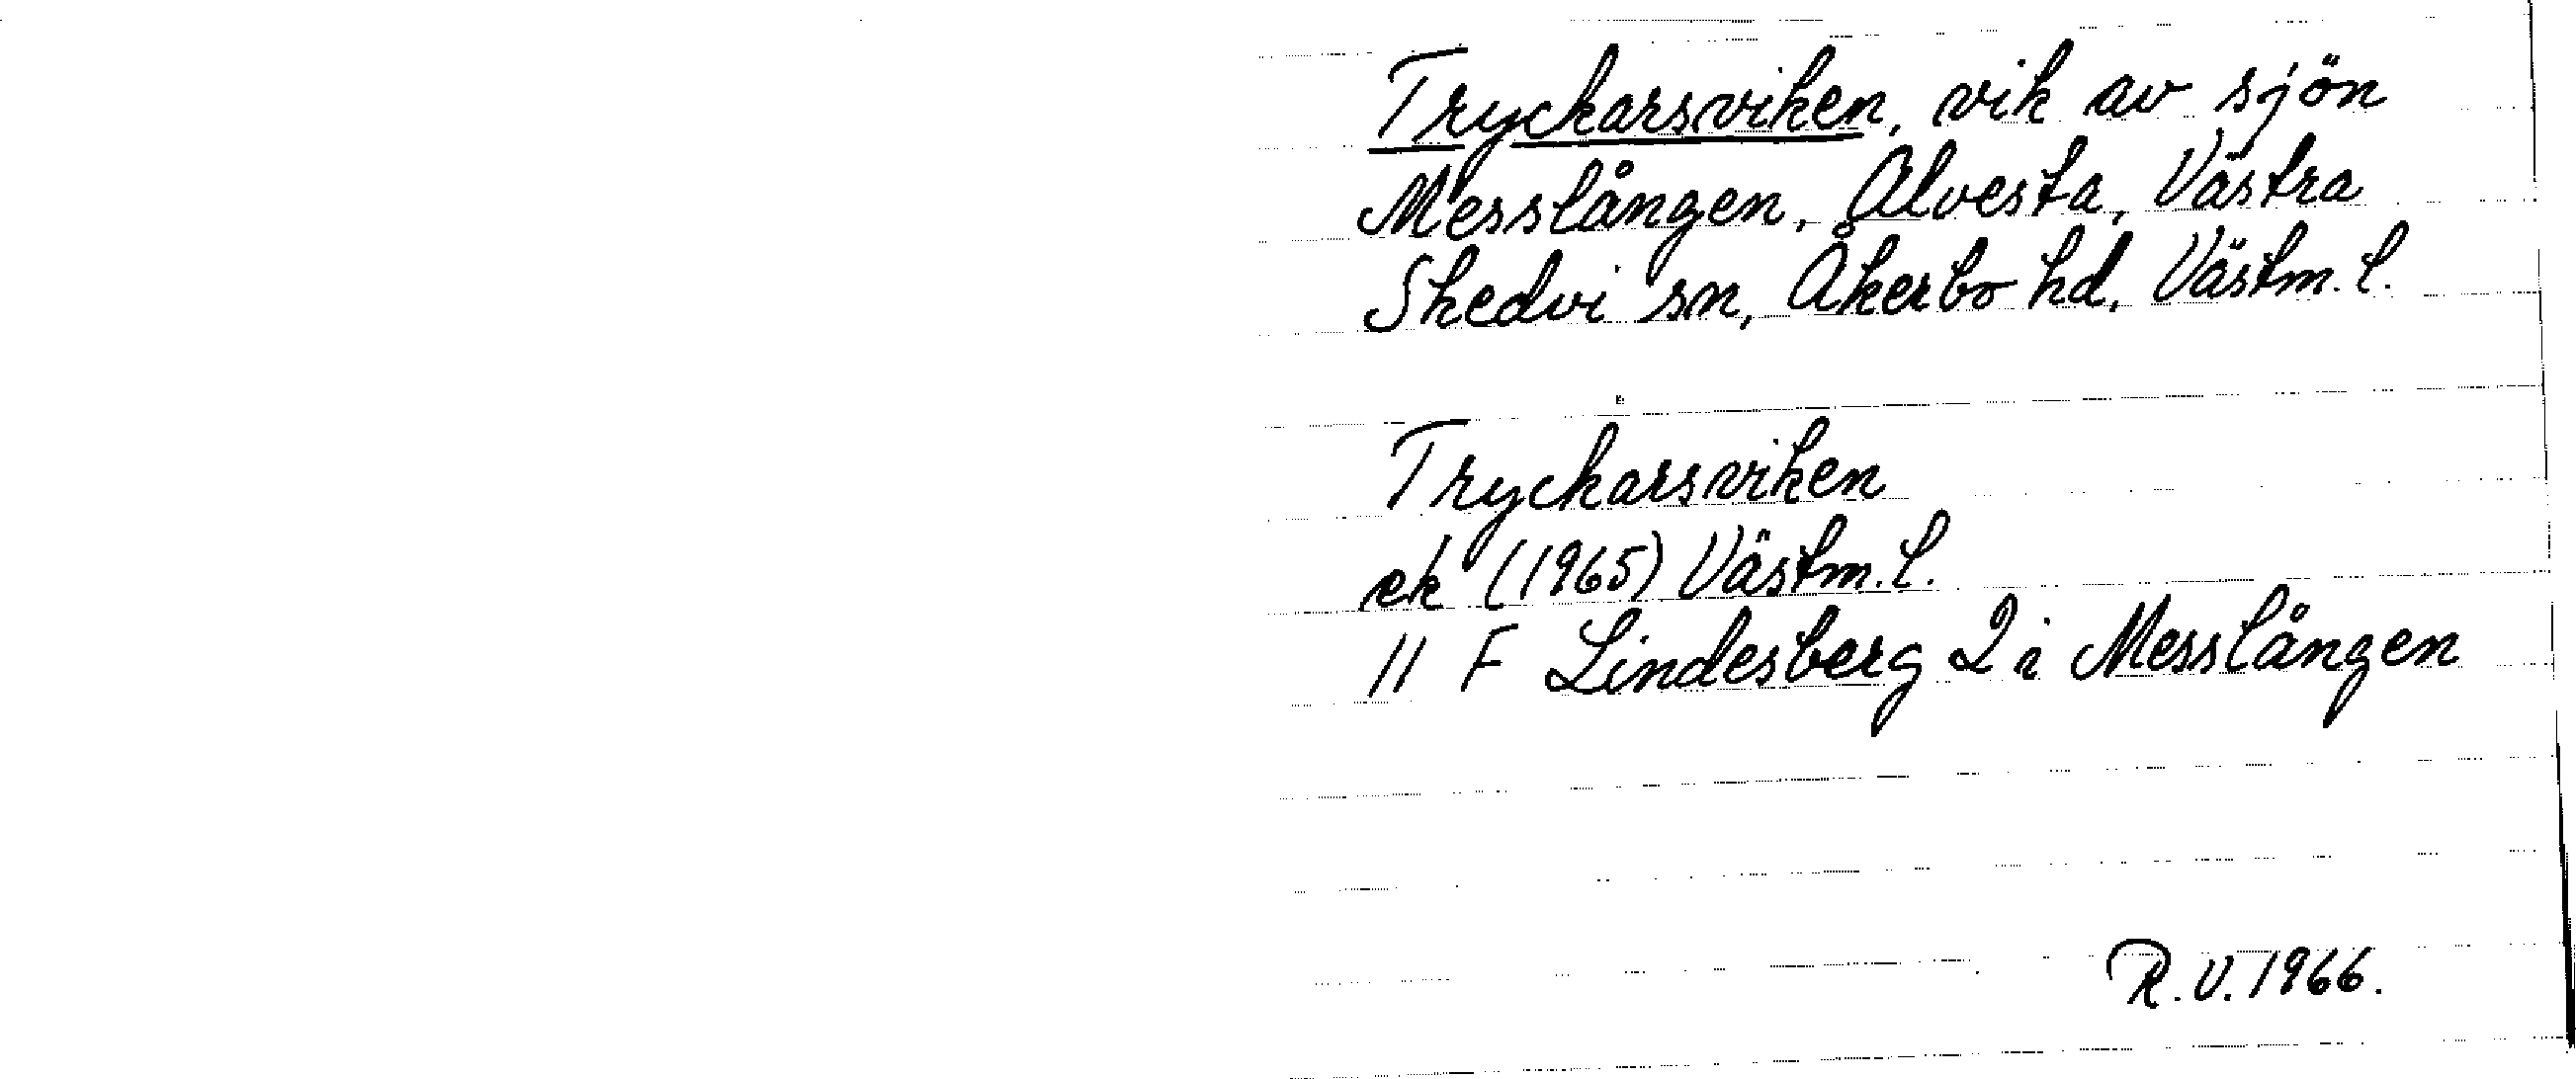 Tryckarsviken, vik av sjön
Messlången, Alvesta, Västra
Skedvi sn, Åkerbo hd, Västm. l.
Tryckarsviken
ek (1965) Västm. l.
11 F Lindesberg 2 i Messlången
R.V. 1966.